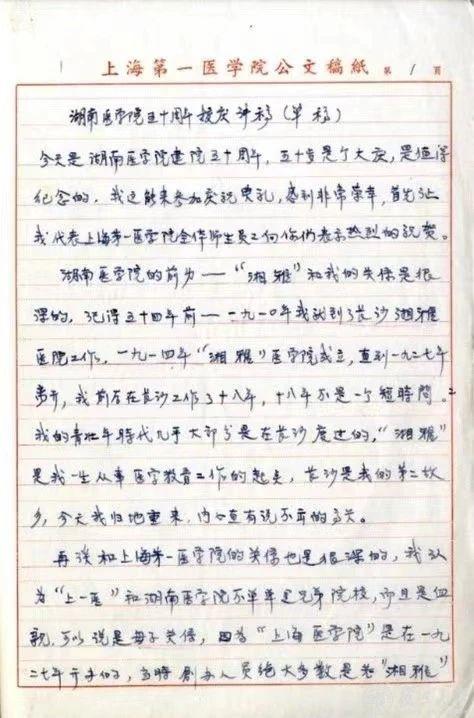 上海第一医学院公文稿紙 第 1 頁
湖南医学院五十周年校庆讲稿（草稿）
今天是湖南医学院建院五十周年，五十岁是个大庆，是值得
纪念的，我这能来参加庆祝典礼，感到非常荣幸，首先让
我代表上海第一医学院全体师生员工向你们表示热烈的祝贺。
湖南医学院的前身——“湘雅”和我的关係是很
深的，记得五十四年前——一九一〇年我就到了长沙湘雅
医院工作。一九一四年“湘雅”医学院成立，直到一九二七年
离开，我前后在长沙工作了十八年，十八年不是一个短時間。
我的青壮年時代几乎大部分是在长沙度过的，“湘雅”
是我一生从事医学教育工作的起点，长沙是我的第二故
乡，今天我归地重来，内心直有说不出的高兴。
再谈和上海第一医学院的关係也是很深的，我认
为“上一医”和湖南医学院不单单是兄弟院校，而且是血
親，可以说是母子关係，因为“上海医学院”是在一九
二七年开办的，当時創办人员绝大多数是老“湘雅”